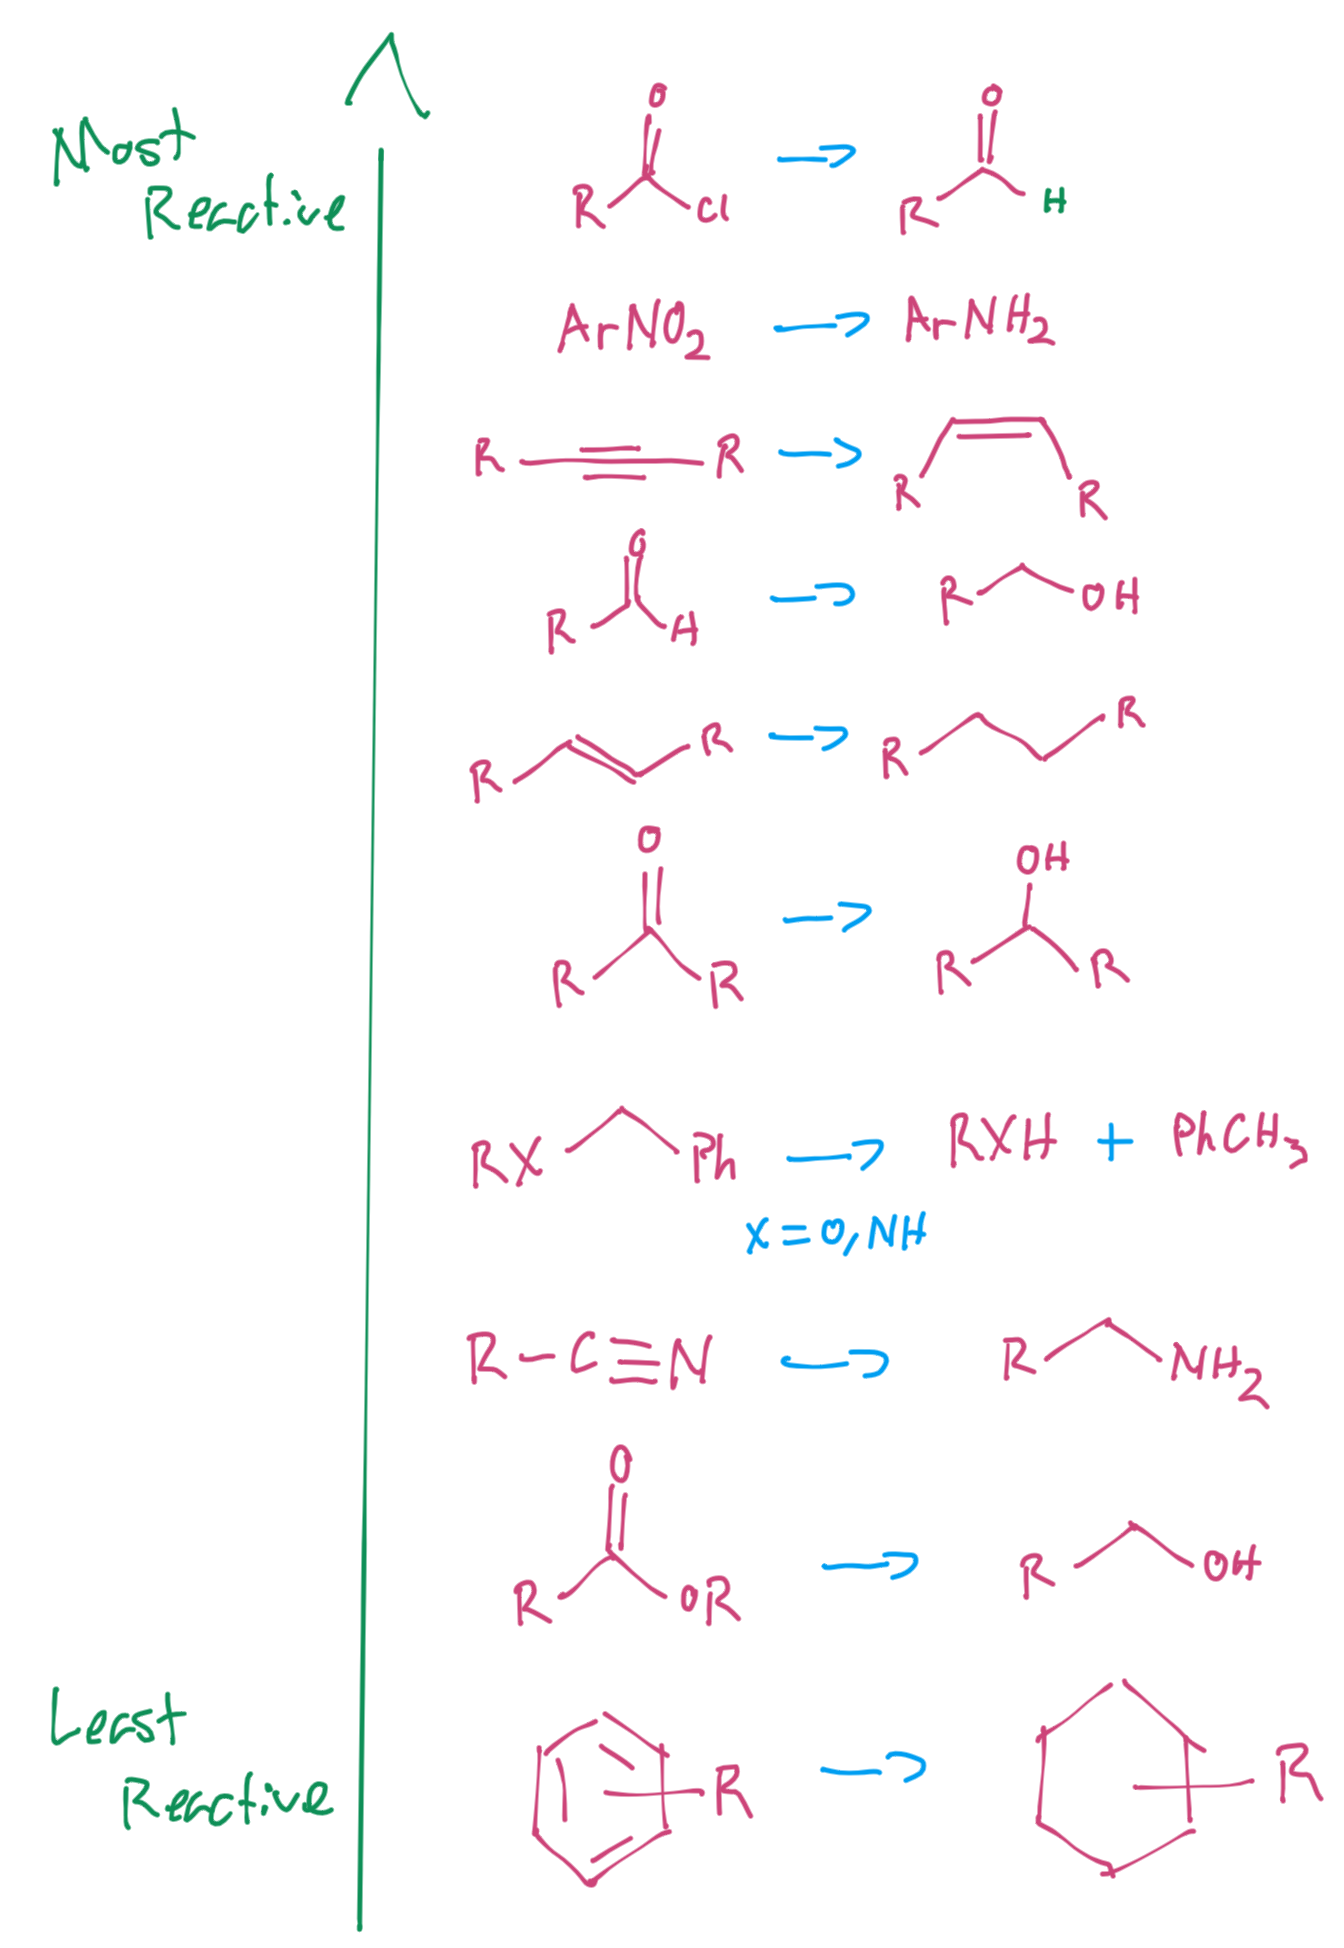 Most
Reactive
O
R Cl
O
R H
ArNO2
ArNH2
R R
R R
O
R H
R OH
R R
R R
O
R R
OH
R R
RX Ph
RXH + PhCH3
X = O, NH
R-C≡N
R NH2
O
R OR
R OH
Least
Reactive
R
R